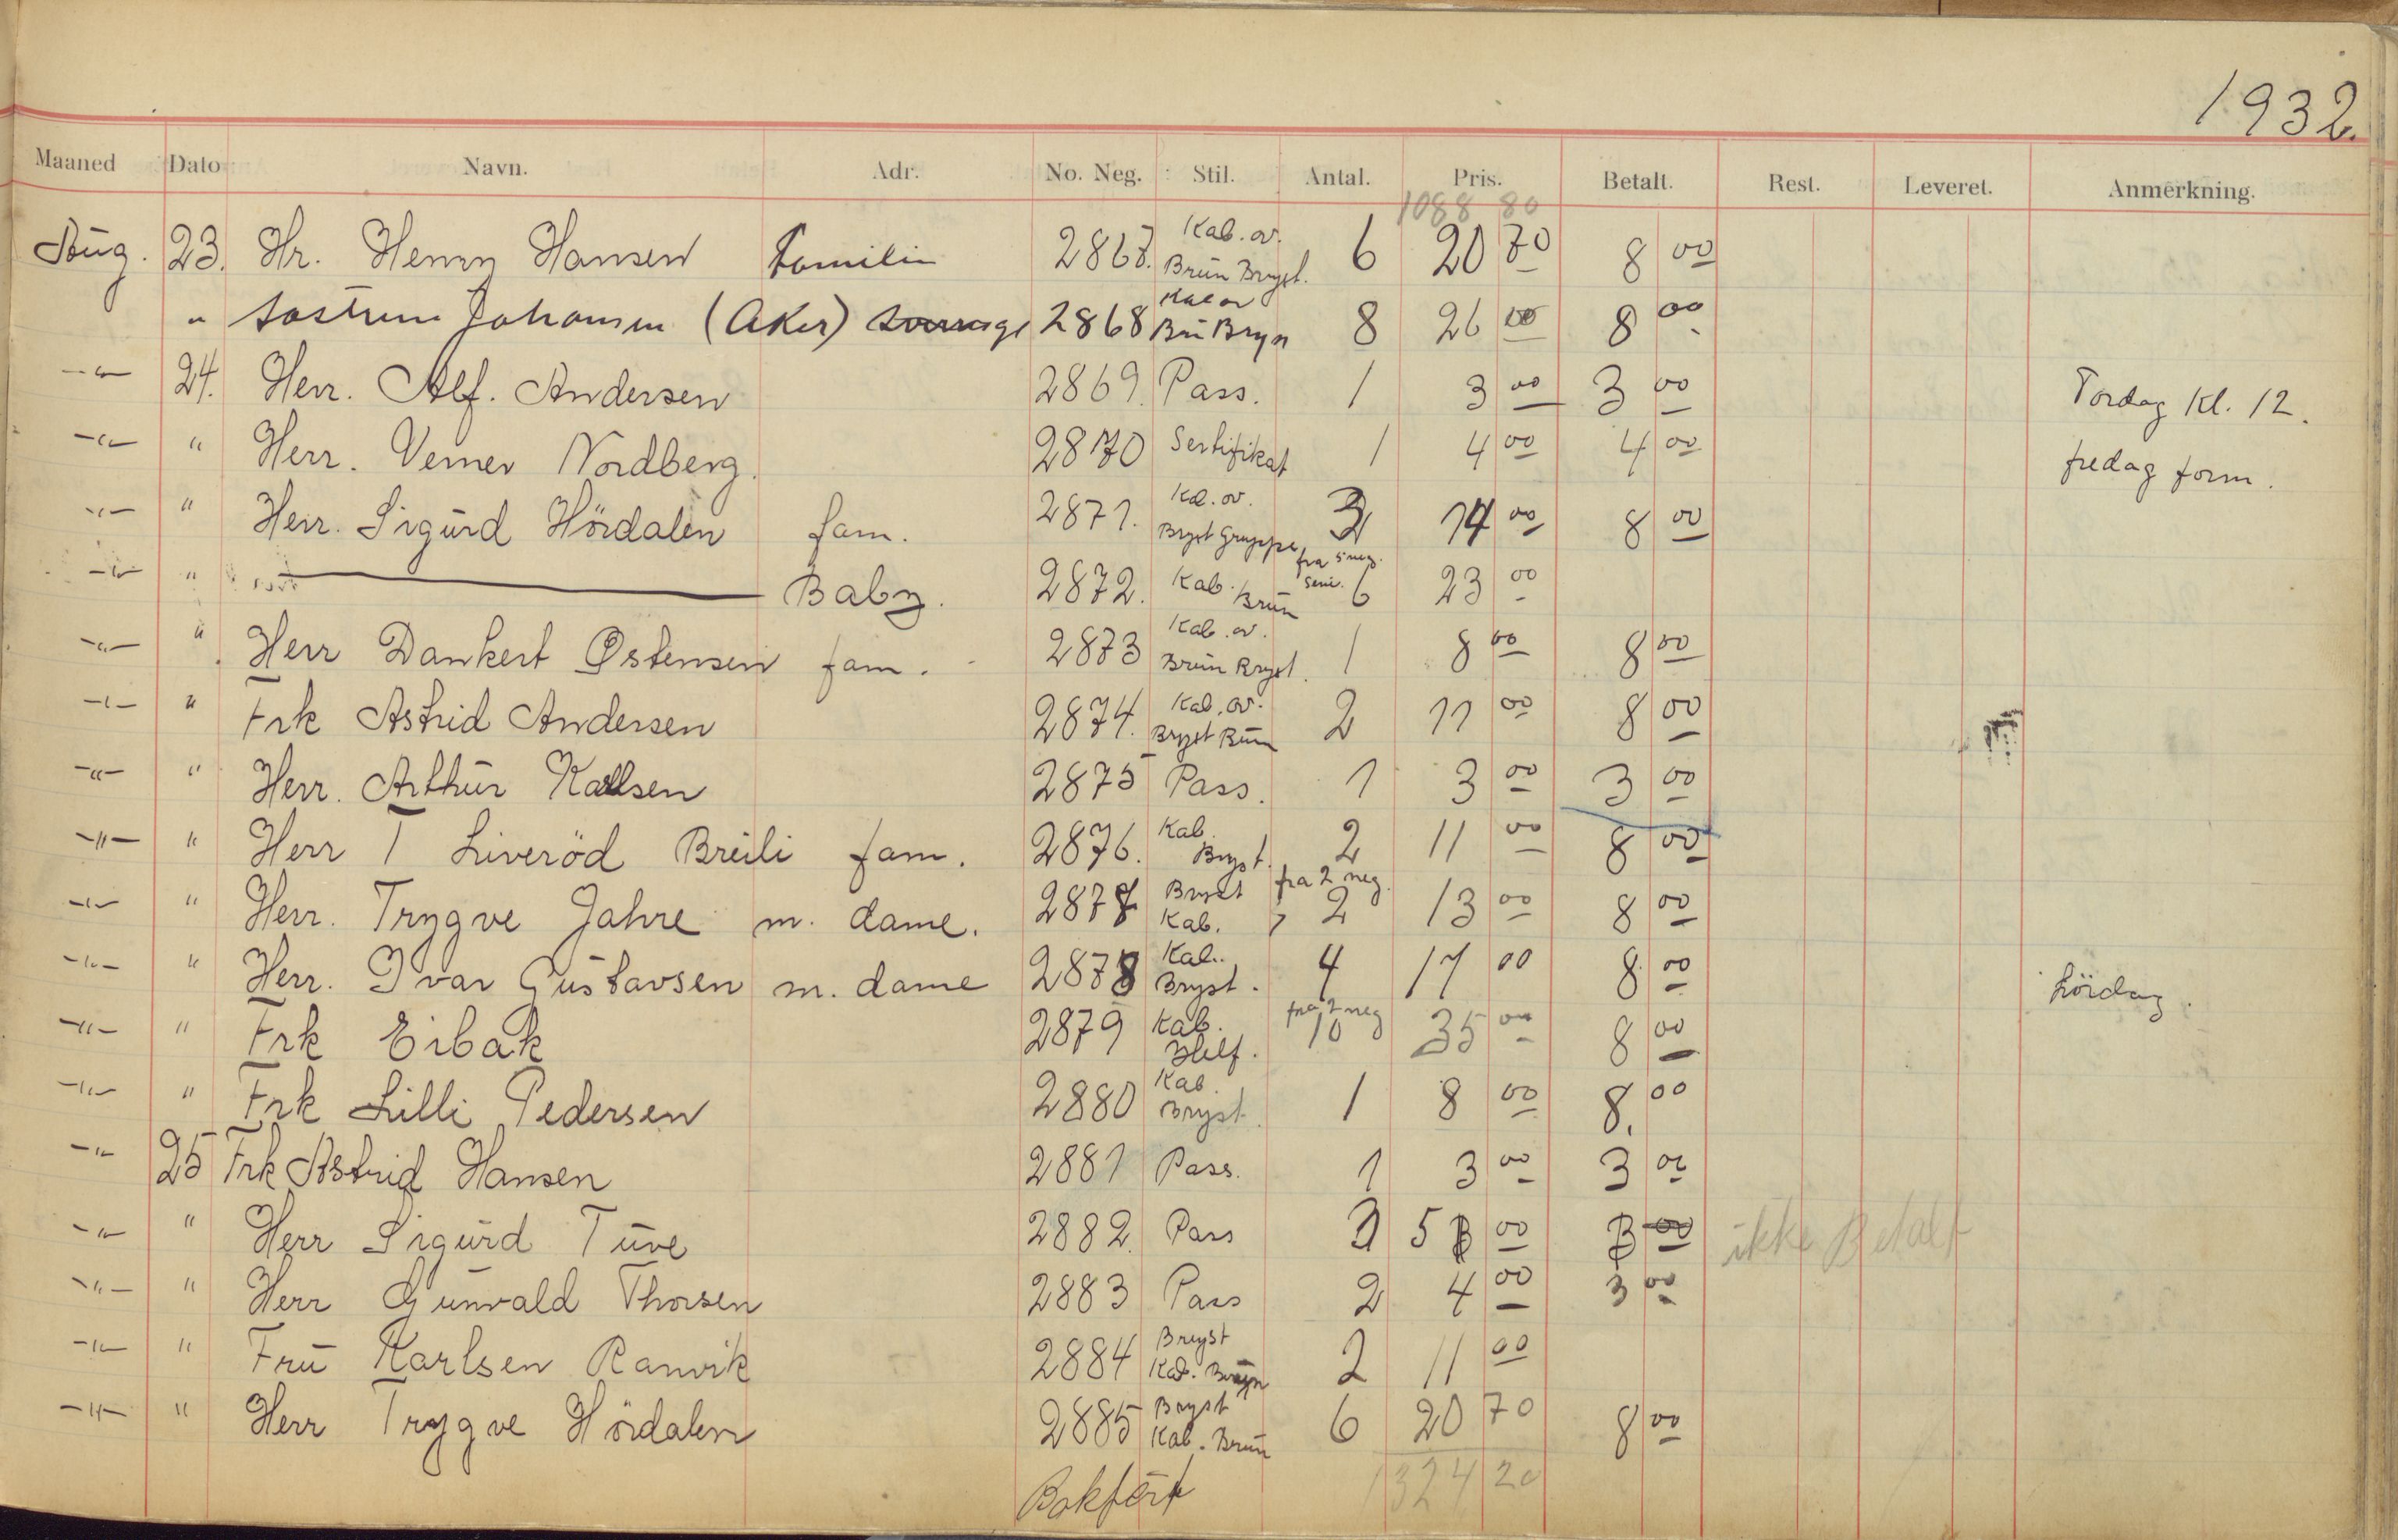 1932.
Maaned Dato Navn. Adr. No. Neg. Stil. Antal. Pris. Betalt. Rest. Leveret. Anmerkning.
1088 80
Aug. 23. Hr. Henry Hansen Familie 2867. Kab. ov. Brun Bryst. 6 20 70 8 00
" Johansen (Aker) 2868 Kab ov Bru Bryn 8 26 00 8 00
-"- 24. Herr. Alf. Andersen 2869. Pass. 1 3 00 3 00 Tordag Kl. 12.
-"- " Herr. Verner Nordberg. 2870 Sertifikat 1 4 00 4 00 fredag form.
-"- " Herr. Sigurd Hördalen fam. 2871. Kab. ov. Bryst Gruppe 3 14 00 8 00
-"- " Baby. 2872. Kab. Brun fra 5 neg. 6 23 00
-"- " Herr Dankert Østensen fam. 2873 Kab. ov. Brun Bryst. 1 8 00 8 00
-"- " Frk Astrid Andersen 2874. Kab. ov. Bryst Brun 2 11 00 8 00
-"- " Herr. Arthur Karlsen 2875 Pass. 1 3 00 3 00
-"- " Herr T Liveröd Breili fam. 2876. Kab. Bryst. 2 11 00 8 00
-"- " Herr. Trygve Jahre m. dame. 2877 Bryst Kab. fra 2 neg. 2 13 00 8 00
-"- " Herr. Ivar Gustavsen m. dame 2878 Kab. Bryst. 4 17 00 8 00 Lördag.
-"- " Frk Eibak 2879 Kab. Helf. fra 2 neg 10 35 00 8 00
-"- " Frk Lilli Pedersen 2880 Kab. Bryst. 1 8 00 8. 00
-"- 25 Frk Astrid Hansen 2881 Pass. 1 3 00 3 00
-"- " Herr Sigurd Tuve 2882. Pass 3 5 00 00 ikke Betalt
-"- " Herr Gunvald Thorsen 2883 Pass 2 4 00 3 00
-"- " Fru Karlsen Ranvik 2884 Bryst Kab. 2 11 00
-"- " Herr Trygve Hördalen 2885 Bryst Kab. Brun 6 20 70 8 00
Bokfört 1324 20